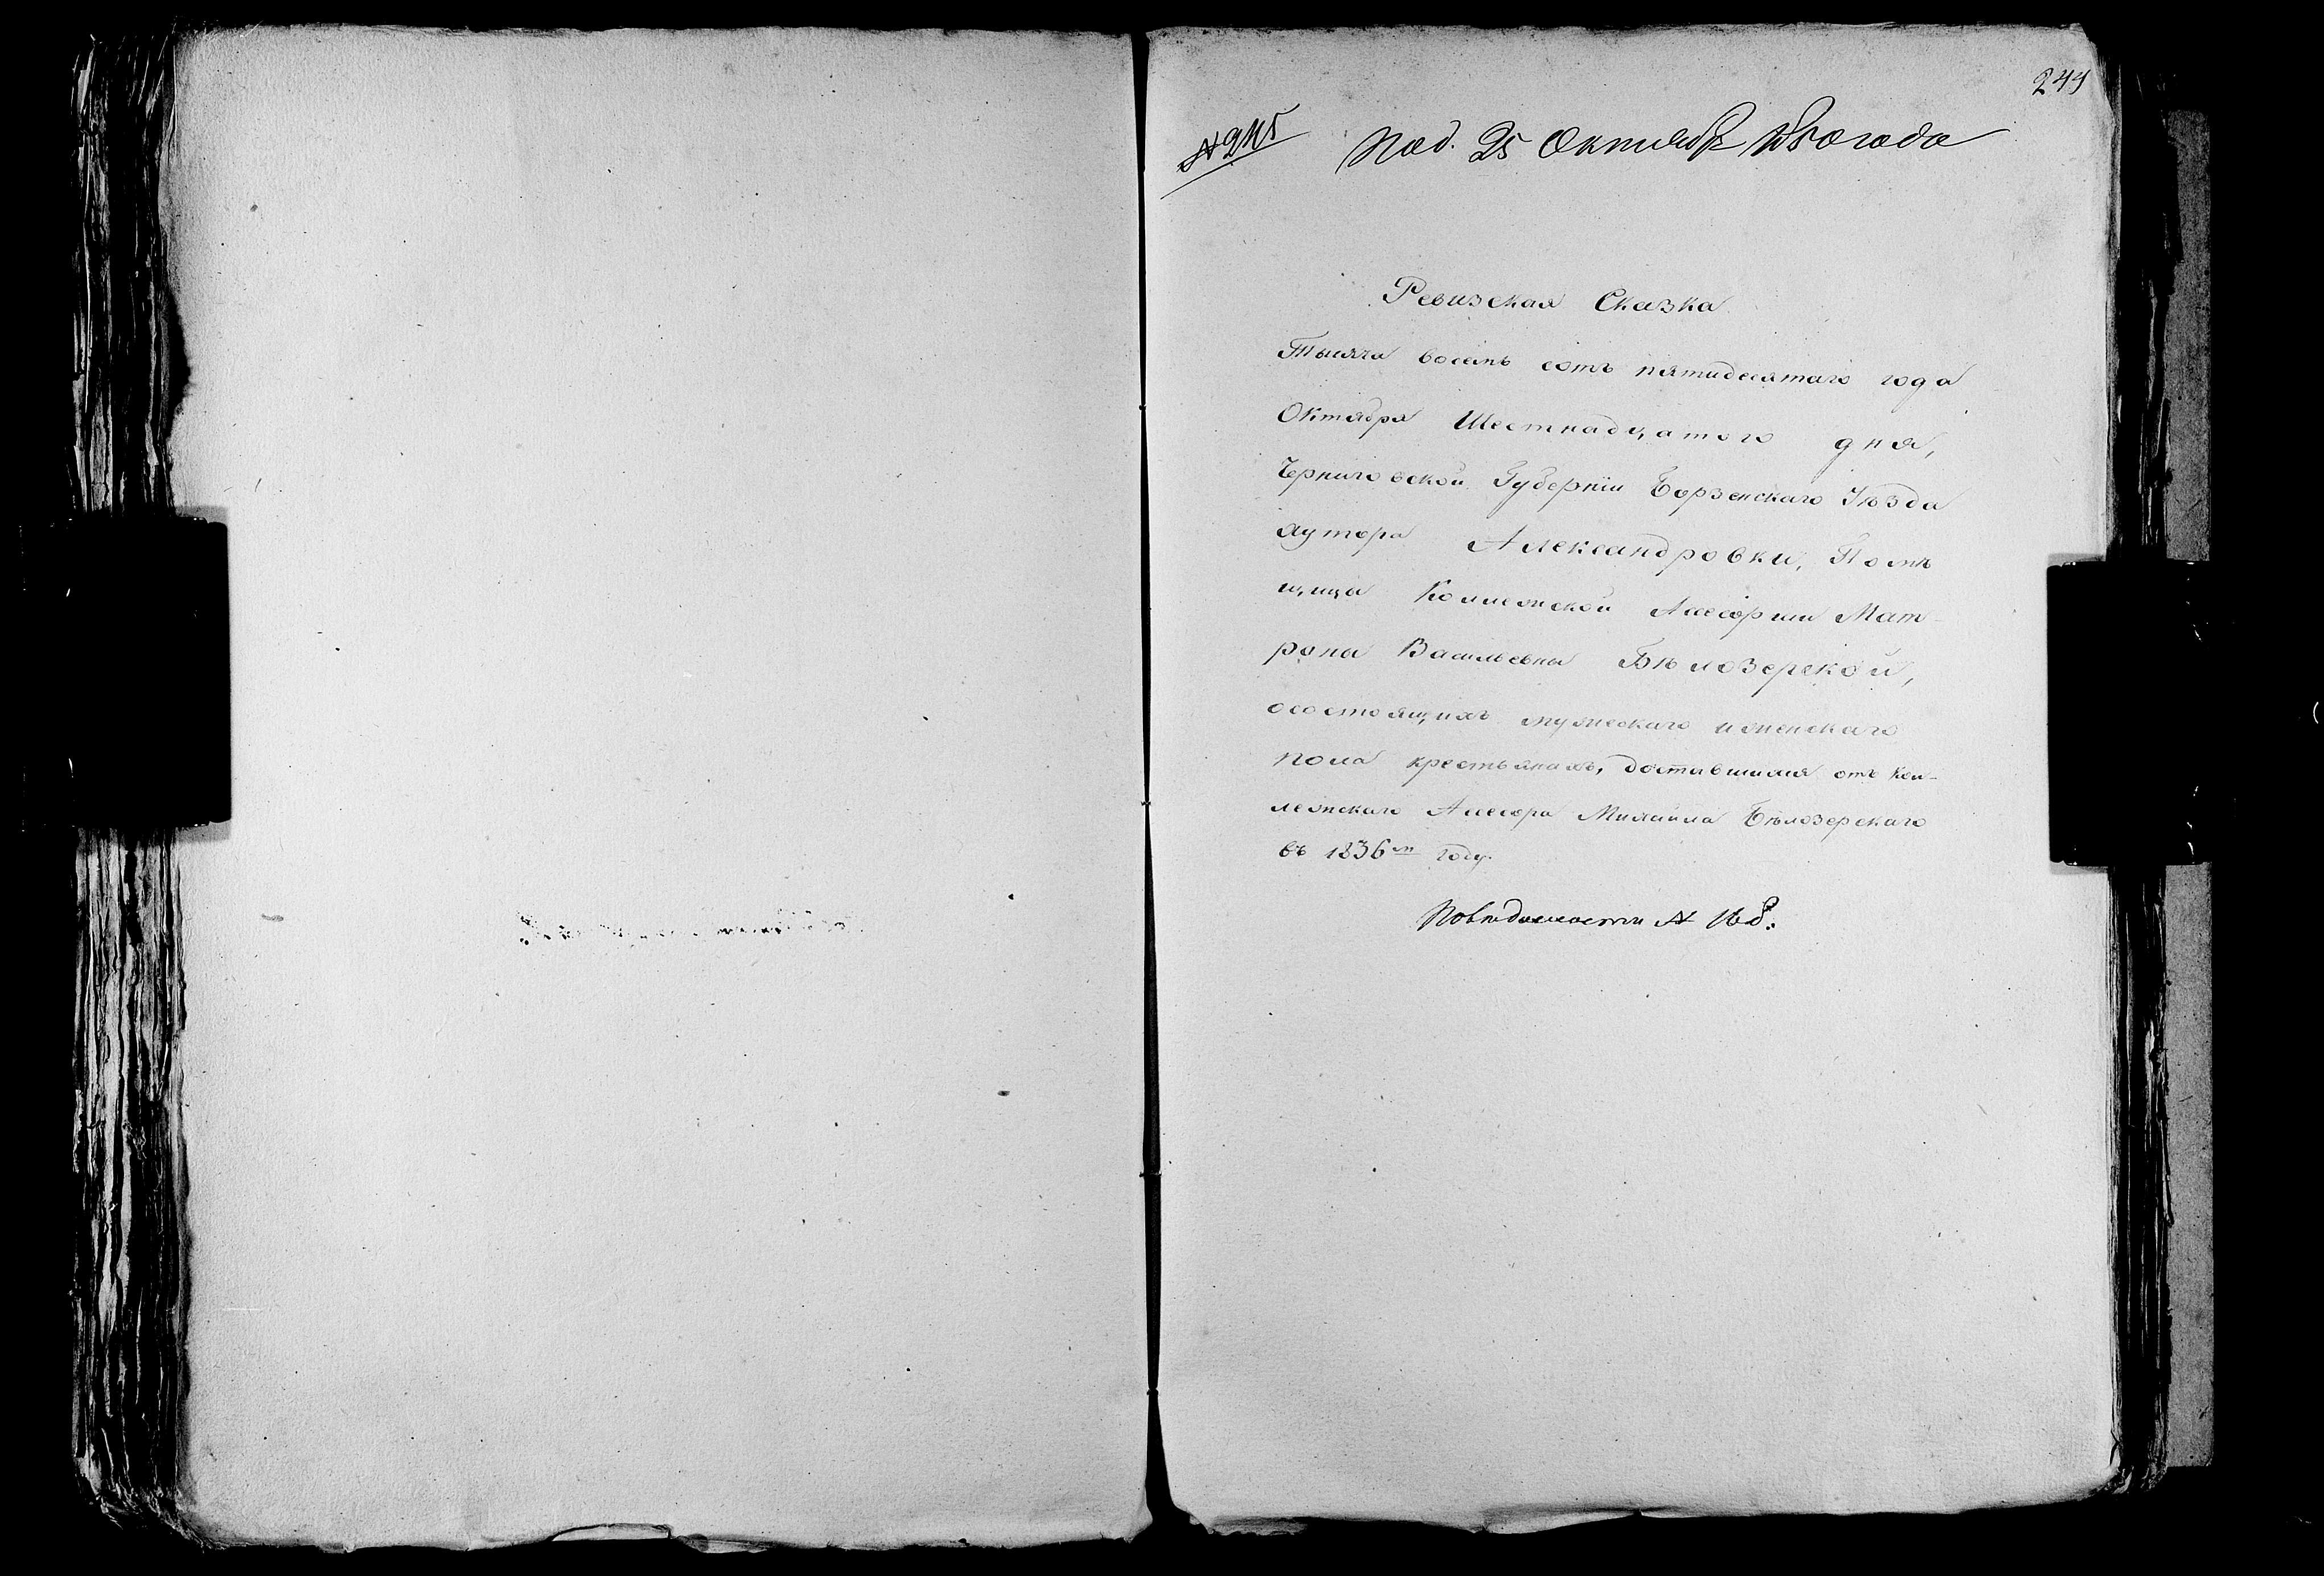 244
№ 245 Под. 25 Октября 1850 года
Ревизская Сказка
Тысяча восемь сотъ пятидесятаго года
Октября Шестнадцатого дня,
Черниговской Губерніи Борзенскаго Уѣзда
хутора Александровки, Помѣ
щицы Коллежской Ассесорши Мат-
роны Васильевны Бѣлозерской,
осостоящихъ мужескаго иженскаго
пола крестьянахъ, доставшихся отъ Кол-
лежскаго Ассесора Михаила Бѣлозерскаго
въ 1836м году.
Повѣдомости № 168.